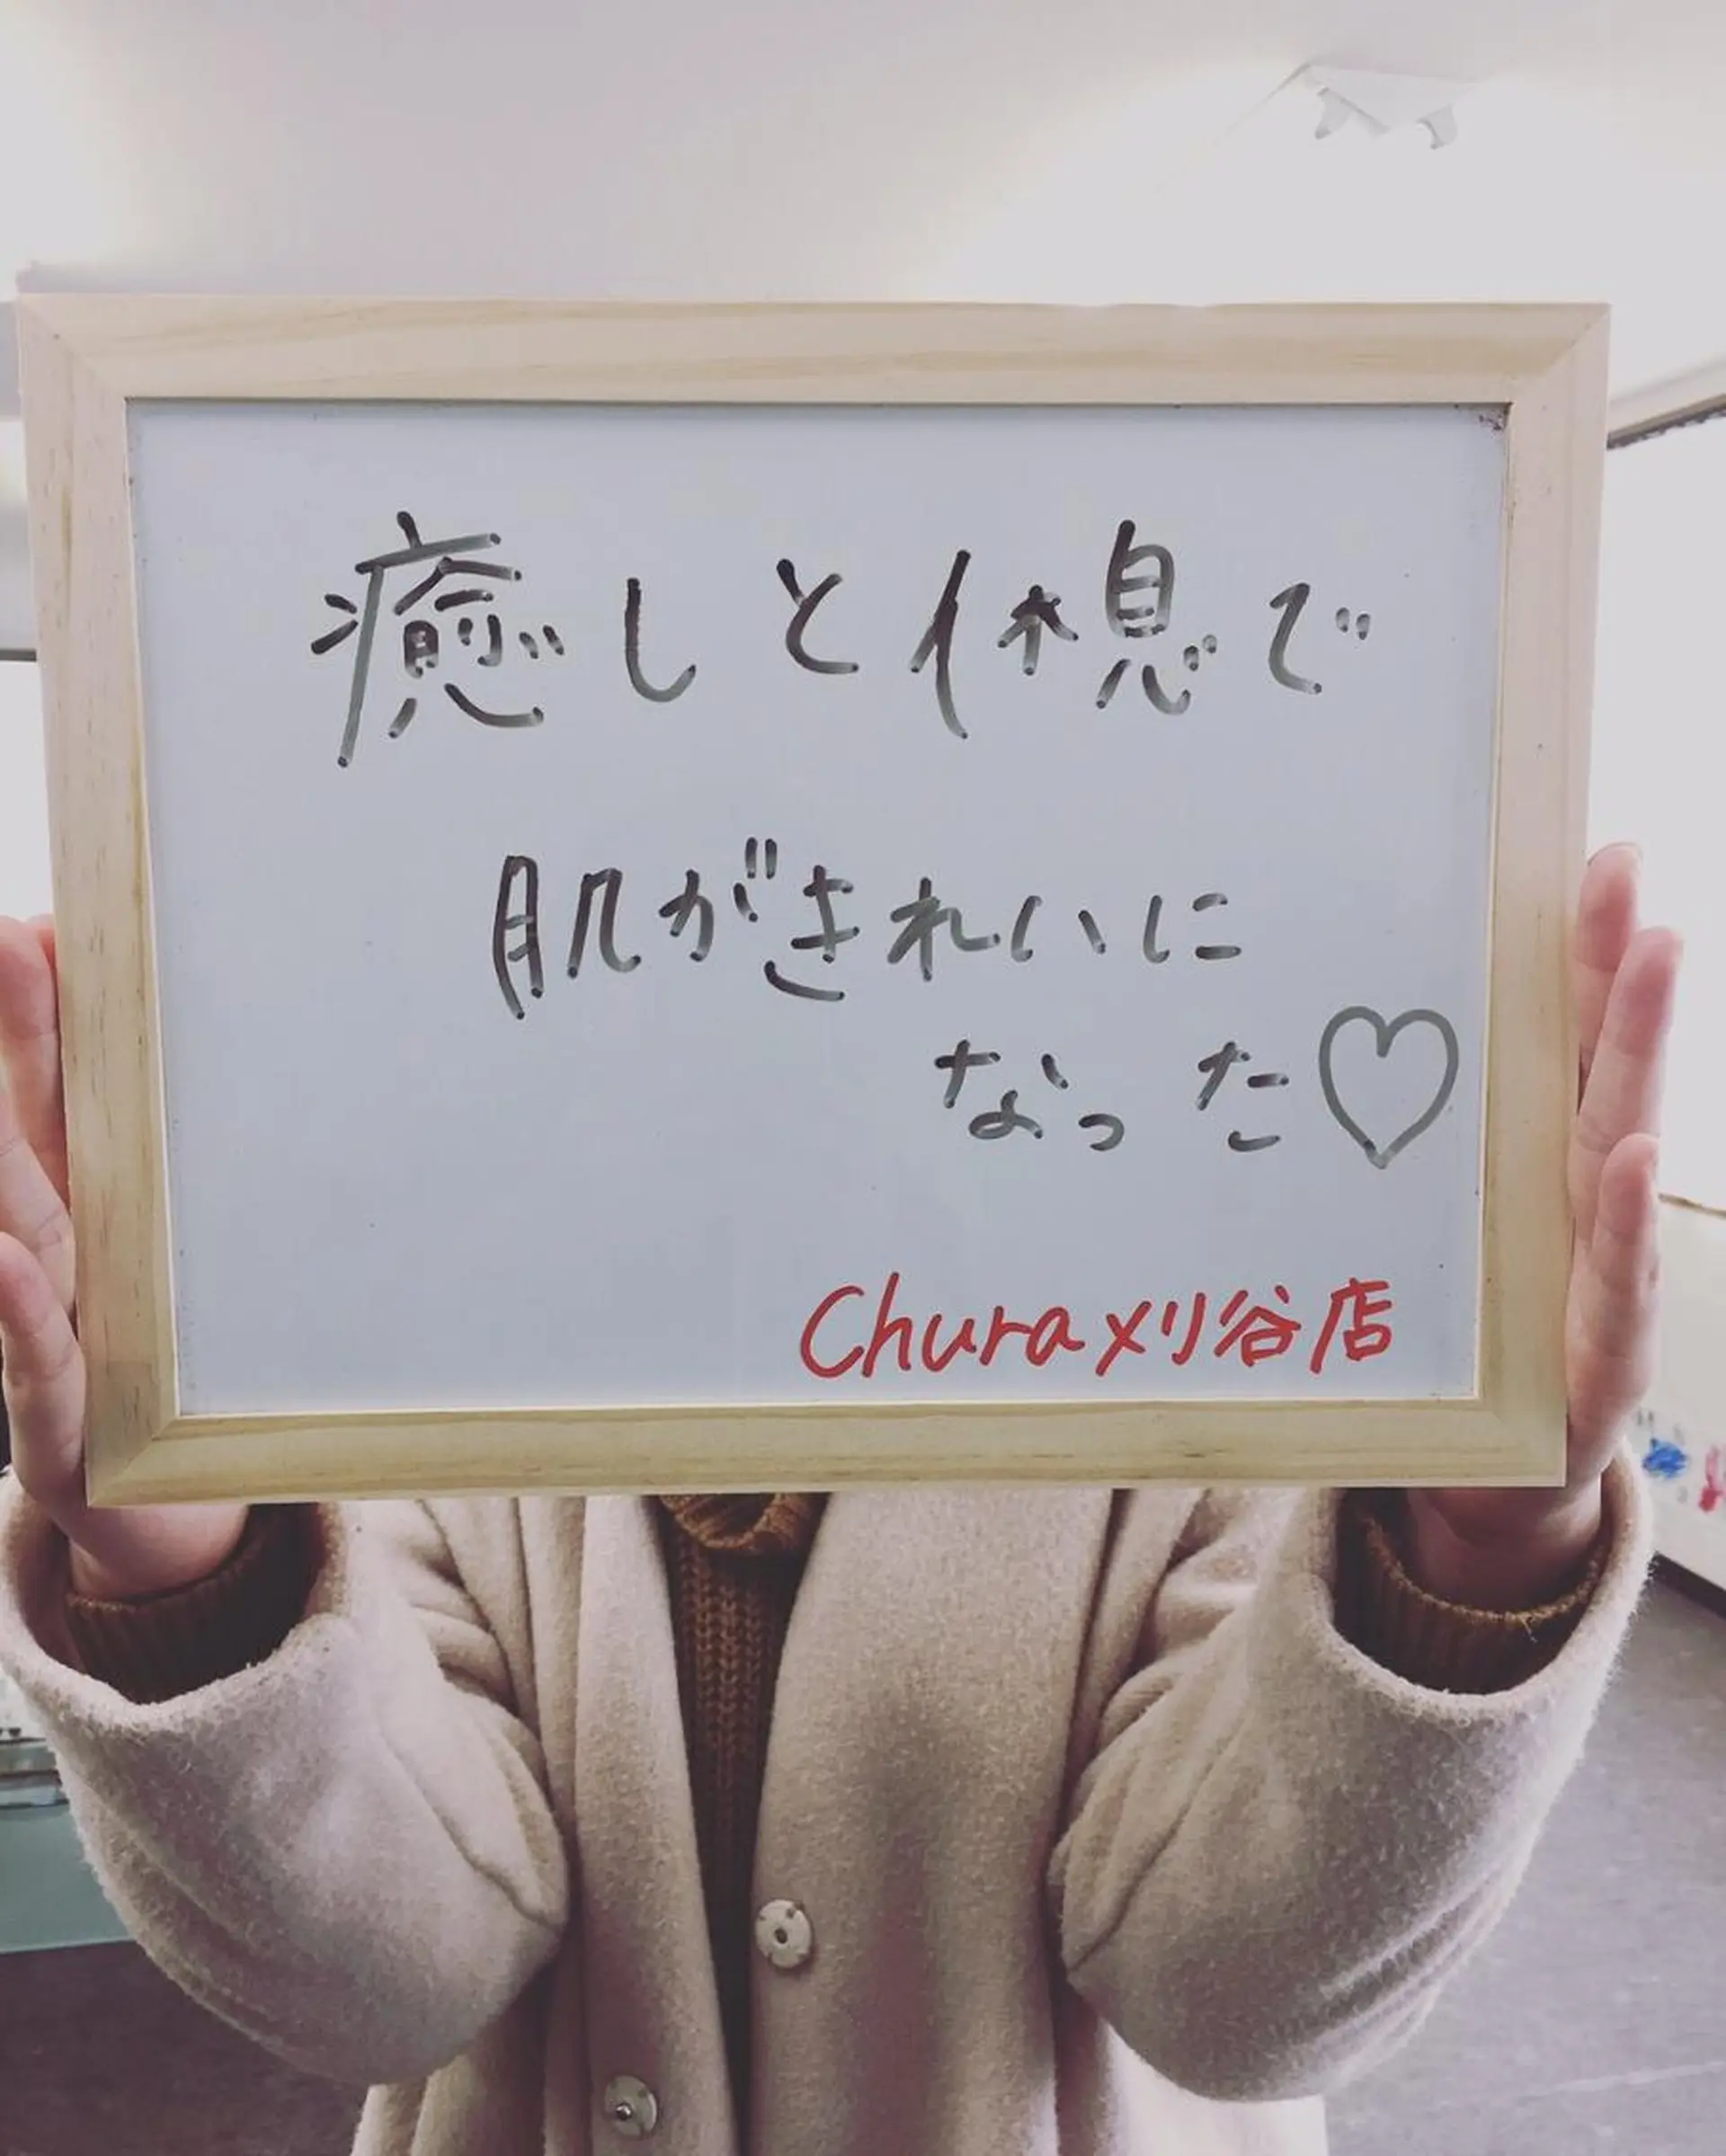 癒しと休息で
肌がきれいに
なった♡
Chura刈谷店